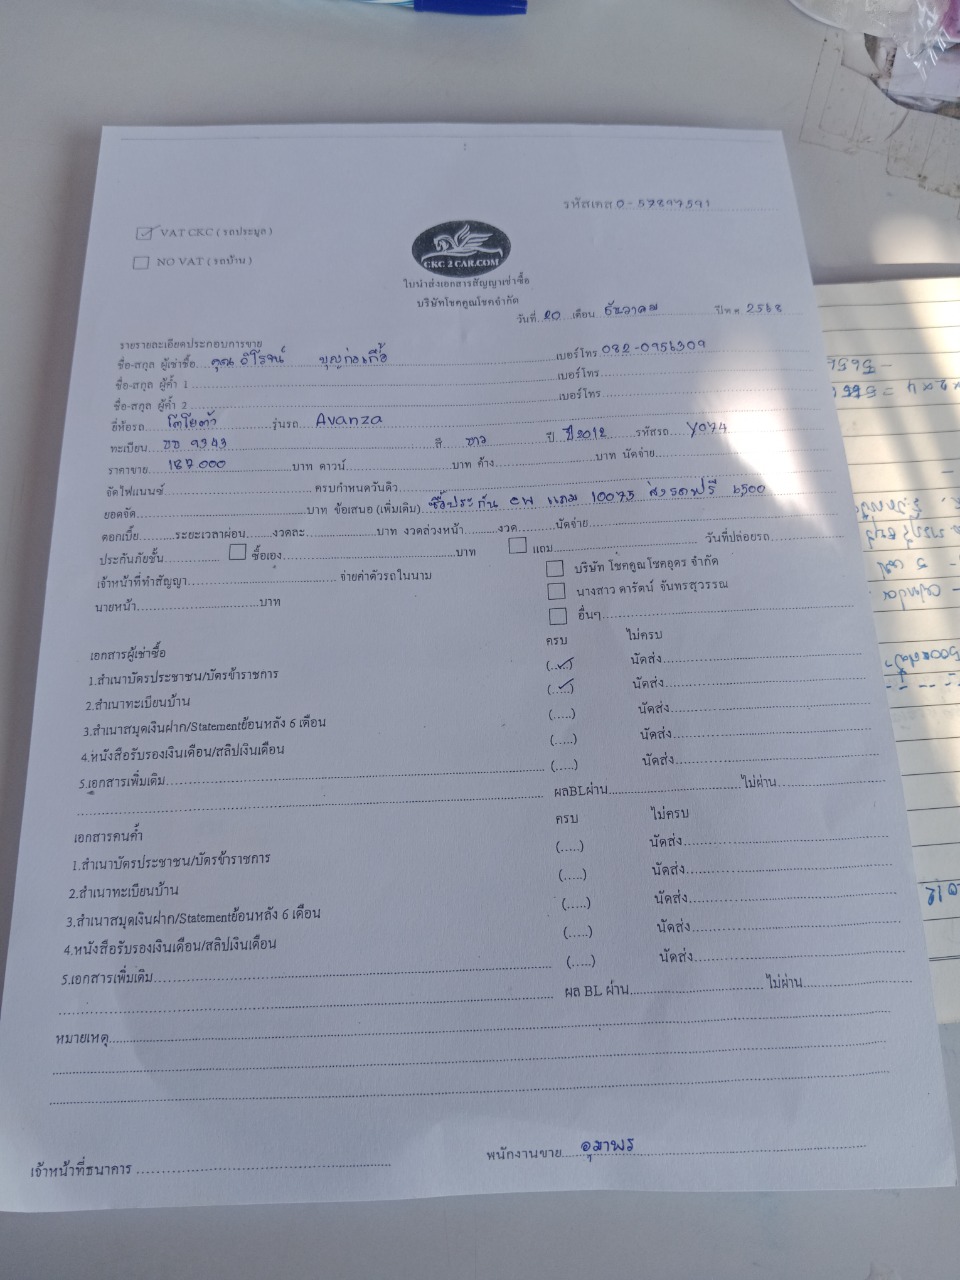 รหัสเคส 0-57897591
VAT CKC ( รถประมูล )
NO VAT ( รถบ้าน )
CKC 2 CAR.COM
ใบนำส่งเอกสารสัญญาเช่าซื้อ
บริษัทโชคคูณโชคจำกัด
วันที่ 20 เดือน ธันวาคม ปี พ.ศ. 2568
รายรายละเอียดประกอบการขาย
ชื่อ-สกุล ผู้เช่าซื้อ คุณ วิโรจน์ บุญก่อเกื้อ เบอร์โทร 082-0956309
ชื่อ-สกุล ผู้ค้ำ 1 เบอร์โทร
ชื่อ-สกุล ผู้ค้ำ 2 เบอร์โทร
ยี่ห้อรถ โตโยต้า รุ่นรถ Avanza
ทะเบียน 9343 สี ขาว ปี ปี 2012 รหัสรถ Y074
ราคาขาย 187000 บาท ดาวน์ บาท ค้าง บาท นัดจ่าย
จัดไฟแนนซ์ ครบกำหนดวันดิว
ยอดจัด บาท ข้อเสนอ (เพิ่มเติม) ซื้อประกัน แถม 10075 ส่งรถฟรี 6500
ดอกเบี้ย ระยะเวลาผ่อน งวดละ บาท งวดล่วงหน้า งวด นัดจ่าย
ประกันภัยชั้น ซื้อเอง บาท แถม วันที่ปล่อยรถ
เจ้าหน้าที่ทำสัญญา จ่ายค่าตัวรถในนาม บริษัท โชคคูณโชคอุดร จำกัด
นายหน้า บาท นางสาว ดารัตน์ จันทรสุวรรณ
อื่นๆ
เอกสารผู้เช่าซื้อ ครบ ไม่ครบ
1.สำเนาบัตรประชาชน/บัตรข้าราชการ (.....) นัดส่ง
2.สำเนาทะเบียนบ้าน (.....) นัดส่ง
3.สำเนาสมุดเงินฝาก/Statementย้อนหลัง 6 เดือน (.....) นัดส่ง
4.หนังสือรับรองเงินเดือน/สลิปเงินเดือน (.....) นัดส่ง
5.เอกสารเพิ่มเติม (.....) นัดส่ง
ผลBLผ่าน ไม่ผ่าน
เอกสารคนค้ำ ครบ ไม่ครบ
1.สำเนาบัตรประชาชน/บัตรข้าราชการ (.....) นัดส่ง
2.สำเนาทะเบียนบ้าน (.....) นัดส่ง
3.สำเนาสมุดเงินฝาก/Statementย้อนหลัง 6 เดือน (.....) นัดส่ง
4.หนังสือรับรองเงินเดือน/สลิปเงินเดือน (.....) นัดส่ง
5.เอกสารเพิ่มเติม (.....) นัดส่ง
ผล BL ผ่าน ไม่ผ่าน
หมายเหตุ
เจ้าหน้าที่ธนาคาร พนักงานขาย อุมาพร